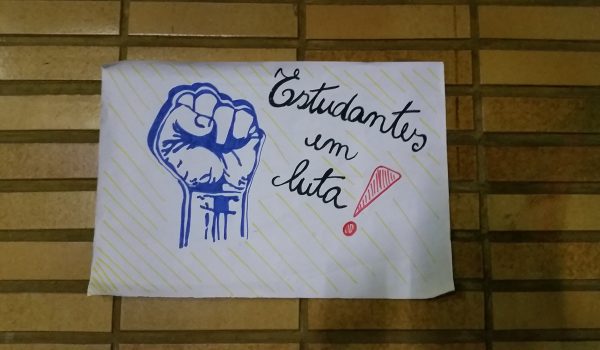 Estudantes
em
luta!